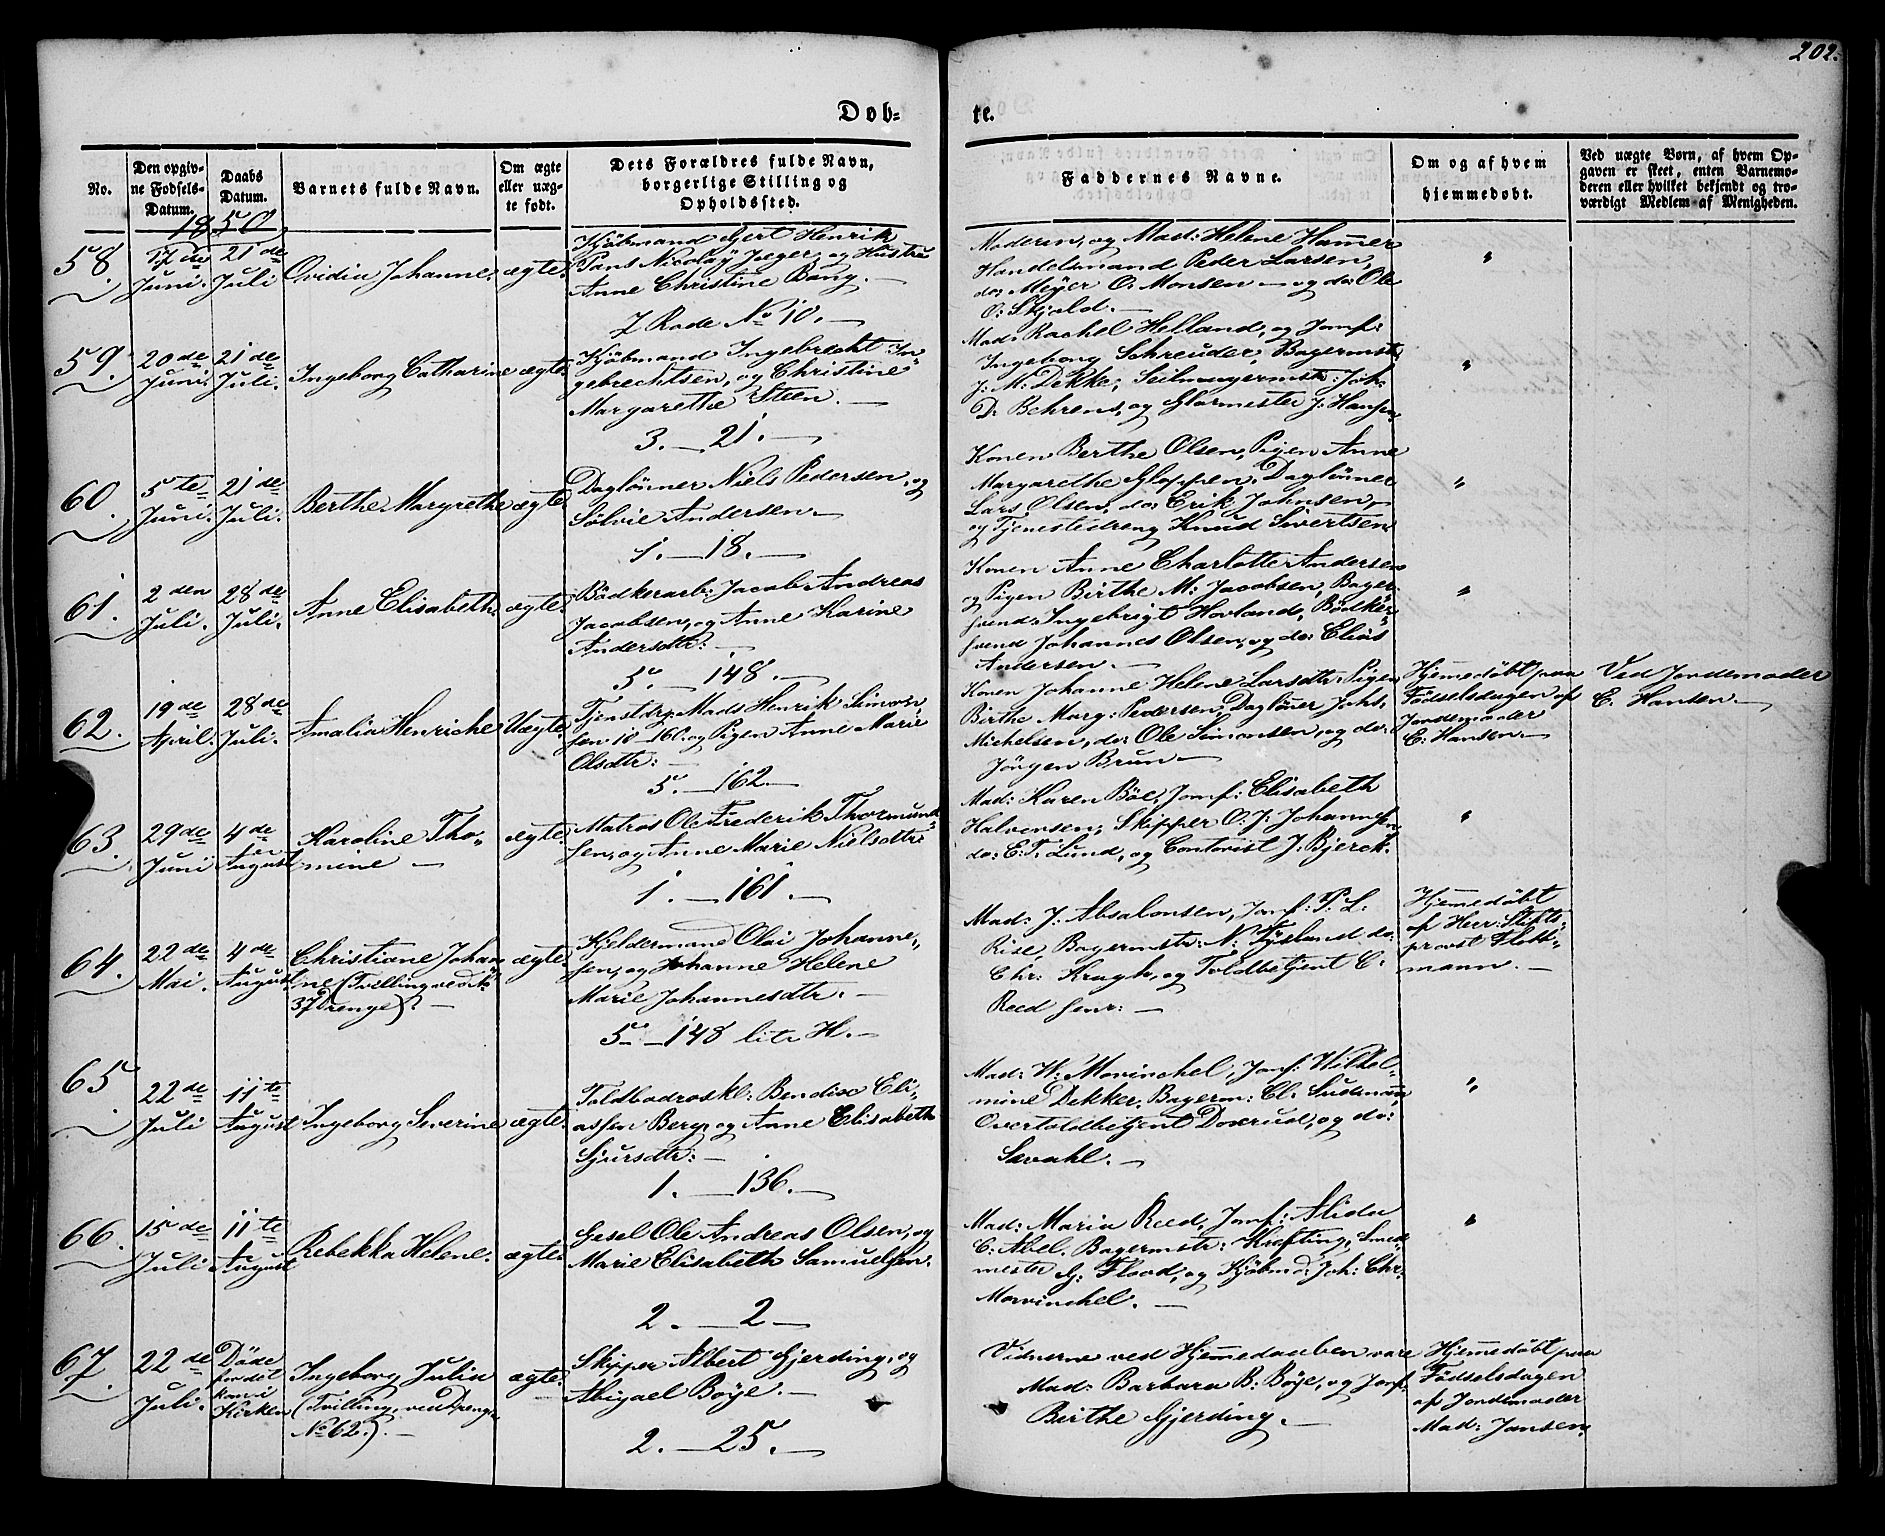 202.
Døb=
te.
No.
Den opgiv-
ne Fødsels-
Datum.
Daabs
Datum.
Barnets fulde Navn.
Om ægte
eller uæg-
te født.
Dets Forældres fulde Navn,
borgerlige Stilling og
Opholdssted.
Faddernes Navne.
Om og af hvem
hjemmedøbt.
Ved uægte Børn, af hvem Op-
gaven er skeet, enten Barnemo-
deren eller hvilket bekjendt og tro-
værdigt Medlem af Menigheden.
1850
58.
17de
Juni.
21de
Juli
Ovidia Johanne.
ægte.
Kjøbmand Gjert Henrik
Pans Nicolay Jæger, og Hustru
Anne Christine Bang. —
7 Rode No 10. —
Moderen, og Mad: Helene Hamer
Handelsmand Peder Larsen,
do: Meyer O. Monsen — og do: Ole
O: Skjold. —
"
59.
20de
Juni.
21de
Juli.
Ingeborg Catharine
ægte.
Kjöbmand Ingebrecht In„
gebrechtsen, og Christine
Margarethe Steen. —
3. — 21. —
Mad: Rachel Helland, og Jomf:
Ingeborg Schreuder, Bagermstr
J: M: Dekke, Seilmagermstr: Joh:
D: Behrens, og Glarmester J: Hansen.
"
60.
5te
Juni.
21de
Juli.
Berthe Margrethe
ægte.
Daglönner Niels Pedersen, og
Sölvie Andersen. —
1. — 18. —
Konen Berthe Olsen, Pigen Anne
Margarethe Gloppen, Daglönner
Lars Olsen, do: Erik Johnsen,
og Tjenestedreng Knud Sivertsen.
"
61.
2den
Juli.
28de
Juli.
Anne Elisabeth.
ægte.
Bödkerarb: Jacob Andreas
Jacobsen, og Anne Karine
Andersdtr: —
5. — 148. —
Konen Anne Charlotte Andersen
og Pigen Birthe M: Jacobsen, Bager-
svend: Ingebrigt Hovland, Bödker-
svend Johannes Olsen, og do: Elias
Andersen. —
"
62.
19de
April.
28de
Juli.
Amalia Henriche
Uægte
Tjenstdrg Mads Henrik Simon„
sen 10-160. og Pigen Anne Marie
Olsdtr: —
5. — 162. —
Konen Johanne Helene Larsdtr: Pigen
Birthe Marg: Pedersen, Daglöner Johs.
Michelsen, do: Ole Simonsen, og do:
Jörgen Brun —
Hjemedöbt paa
Födselsdagen af
Jordemoder
C: Hansen. —
Ved Jordemoder
C. Hansen. —
63.
29de
Juni
4de
August
Karoline Tho„
mine —
ægte.
Matros Ole Frederik Thormund„
sen, og Anne Marie Nielsdtr:
1. — 161. —
Mad: Karen Böe, Jomf: Elisabeth
Halvorsen, Skipper O. J: Johannsen,
do: E. T. Lund, og Contorist J. Bjerck.
"
64.
22de
Mai.
4de
August
Christiane Johan
ne (Tvilling ved No
37 Drenge). —
ægte.
Kjeldermand Olai Johanne„
sen, og Johanne Helene
Marie Johannesdtr. —
5 — 148 litr H. —
Mad: J: Absalonsen, Jomf: P. L.
Rise, Bagermstr: N: Tysland do:
Chr: Kragh, og Toldbetjent C:
Reed senr: —
Hjemedöbt
af Herr: Stifts-
provst
mann. —
65
22de
Juli
11te
August
Ingeborg Severine
ægte.
Toldbodroskl: Bendix Eli„
assen Berg, og Anne Elisabeth
Sjursdtr: —
1. — 136. —
Mad: W: Mowinchel, Jomf: Wilhel-
mine Dekker, Bagerm: Cl: Sudmann
Overtoldbetjent Doxrud, og do:
Sævahl. —
"
66.
15de
Juli
11te
August
Rebekka Helene.
ægte.
Gesel Ole Andreas Olsen, og
Marie Elisabeth Samuelsen.
2. — 2 —
Mad: Maria Reed, Jomf: Alida
C: Abel, Bagermstr: Krafting, Smed-
mester G: Flood, og Kjöbmd: Joh: Chr:
Mowinchel. —
"
67.
22de
Juli.
Döde
för det
kom i
Kirken
Ingeborg Julia
(Tvilling, ved Dreng
No 62.). —
ægte.
Skipper Albert Gjerding, og
Abigael Böye. —
2. — 25. —
Vidnerne ved Hjemedaaben vare
Mad: Barbara B: Böye, og Jomf:
Birthe Gjerding. —
Hjemedöbt paa
Födselsdagen
af Jordemoder
Mad: Jansen.